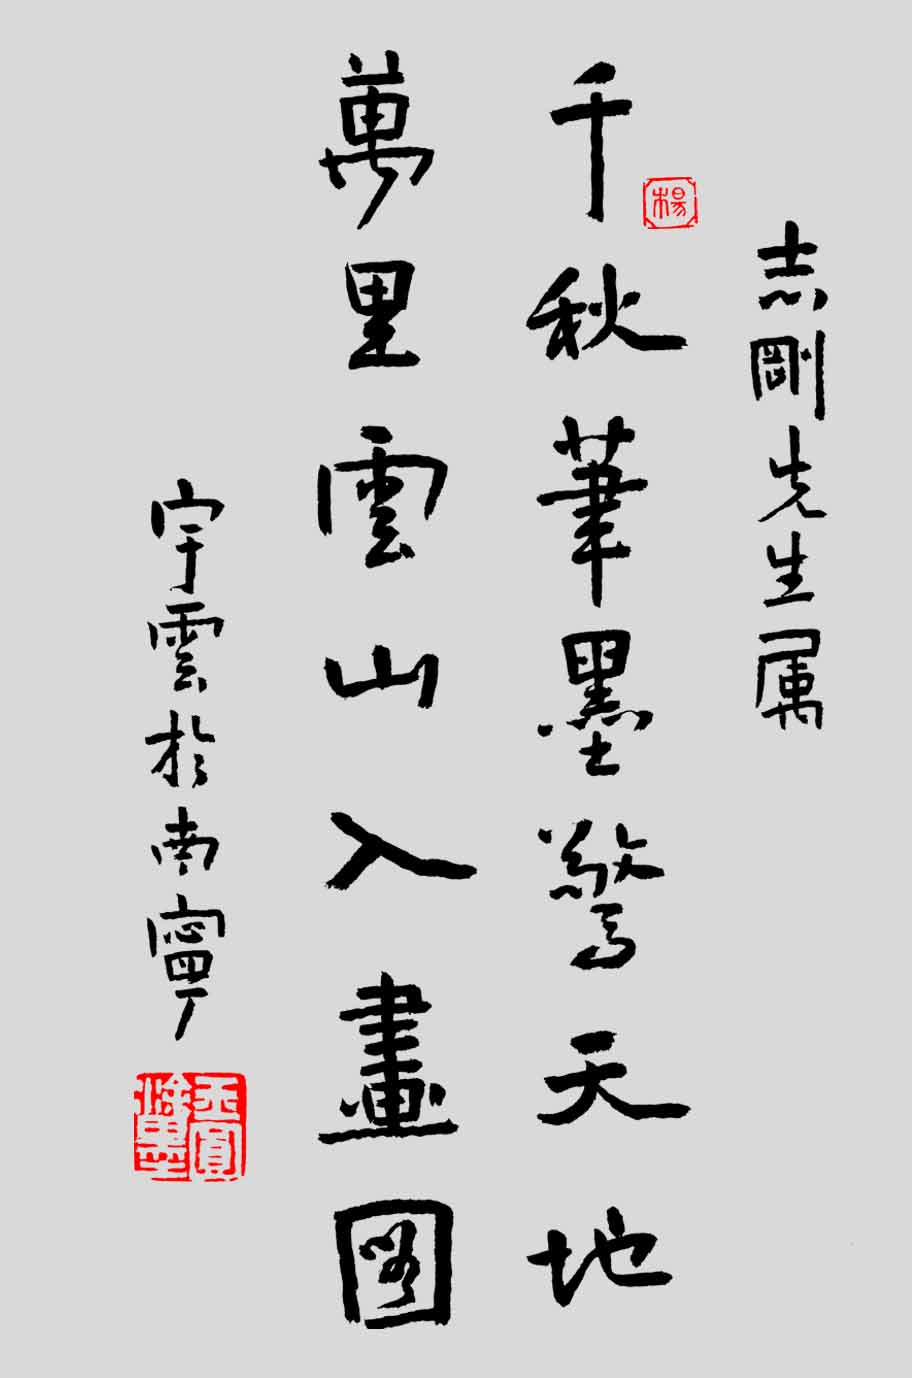 志剛先生属
千秋筆墨驚天地
萬里雲山入畫圖
宇雲於南寧
楊